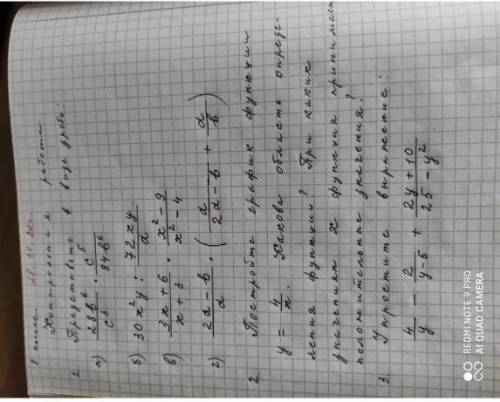 8 класс
Контрольная работа
1. Представьте в виде дроби:
а) 28b⁶/c³ · c⁵/84b⁶
б) 30x²y : 72xy/a
в) 3x+6/x+3 · x²-9/x²-4
г) 2a-b/a · (a/2a-b + a/b)
2. Постройте график функции
y = 4/x. Какова область опреде-
ления функции? При каких
значениях x функция принимает
положительные значения?
3. Упростите выражение:
4/y - 2/y-5 + 2y+10/25-y²
REDMI NOTE 9 PRO
AI QUAD CAMERA